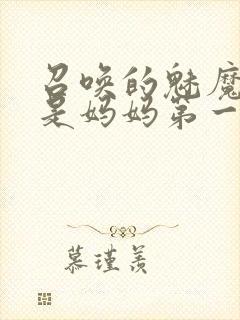 召唤的魅魔
是妈妈第一
慕瑾羡